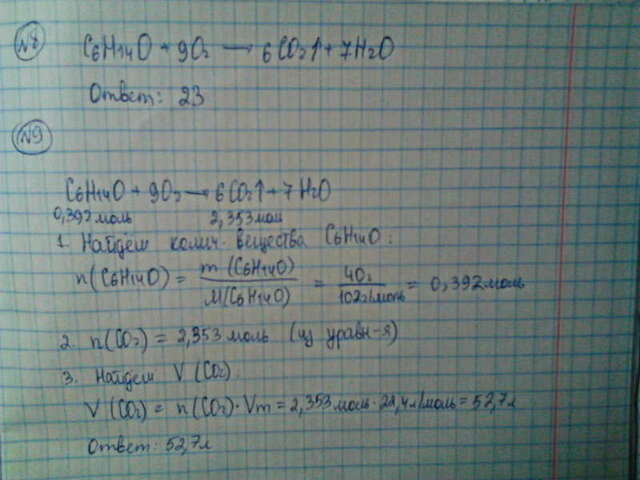 №8
C6H14O + 9O2 → 6CO2↑ + 7H2O
Ответ: 23
№9
C6H14O + 9O2 → 6CO2↑ + 7H2O
0,392 моль 2,353 мол
1. Найдём колич. вещества C6H14O:
n(C6H14O) = m(C6H14O) / M(C6H14O) = 40г / 102г/моль = 0,392 моль
2. n(CO2) = 2,353 моль (из уравн-я)
3. Найдем V(CO2)
V(CO2) = n(CO2)·Vm = 2,353 моль · 22,4 л/моль = 52,7 л
Ответ: 52,7 л